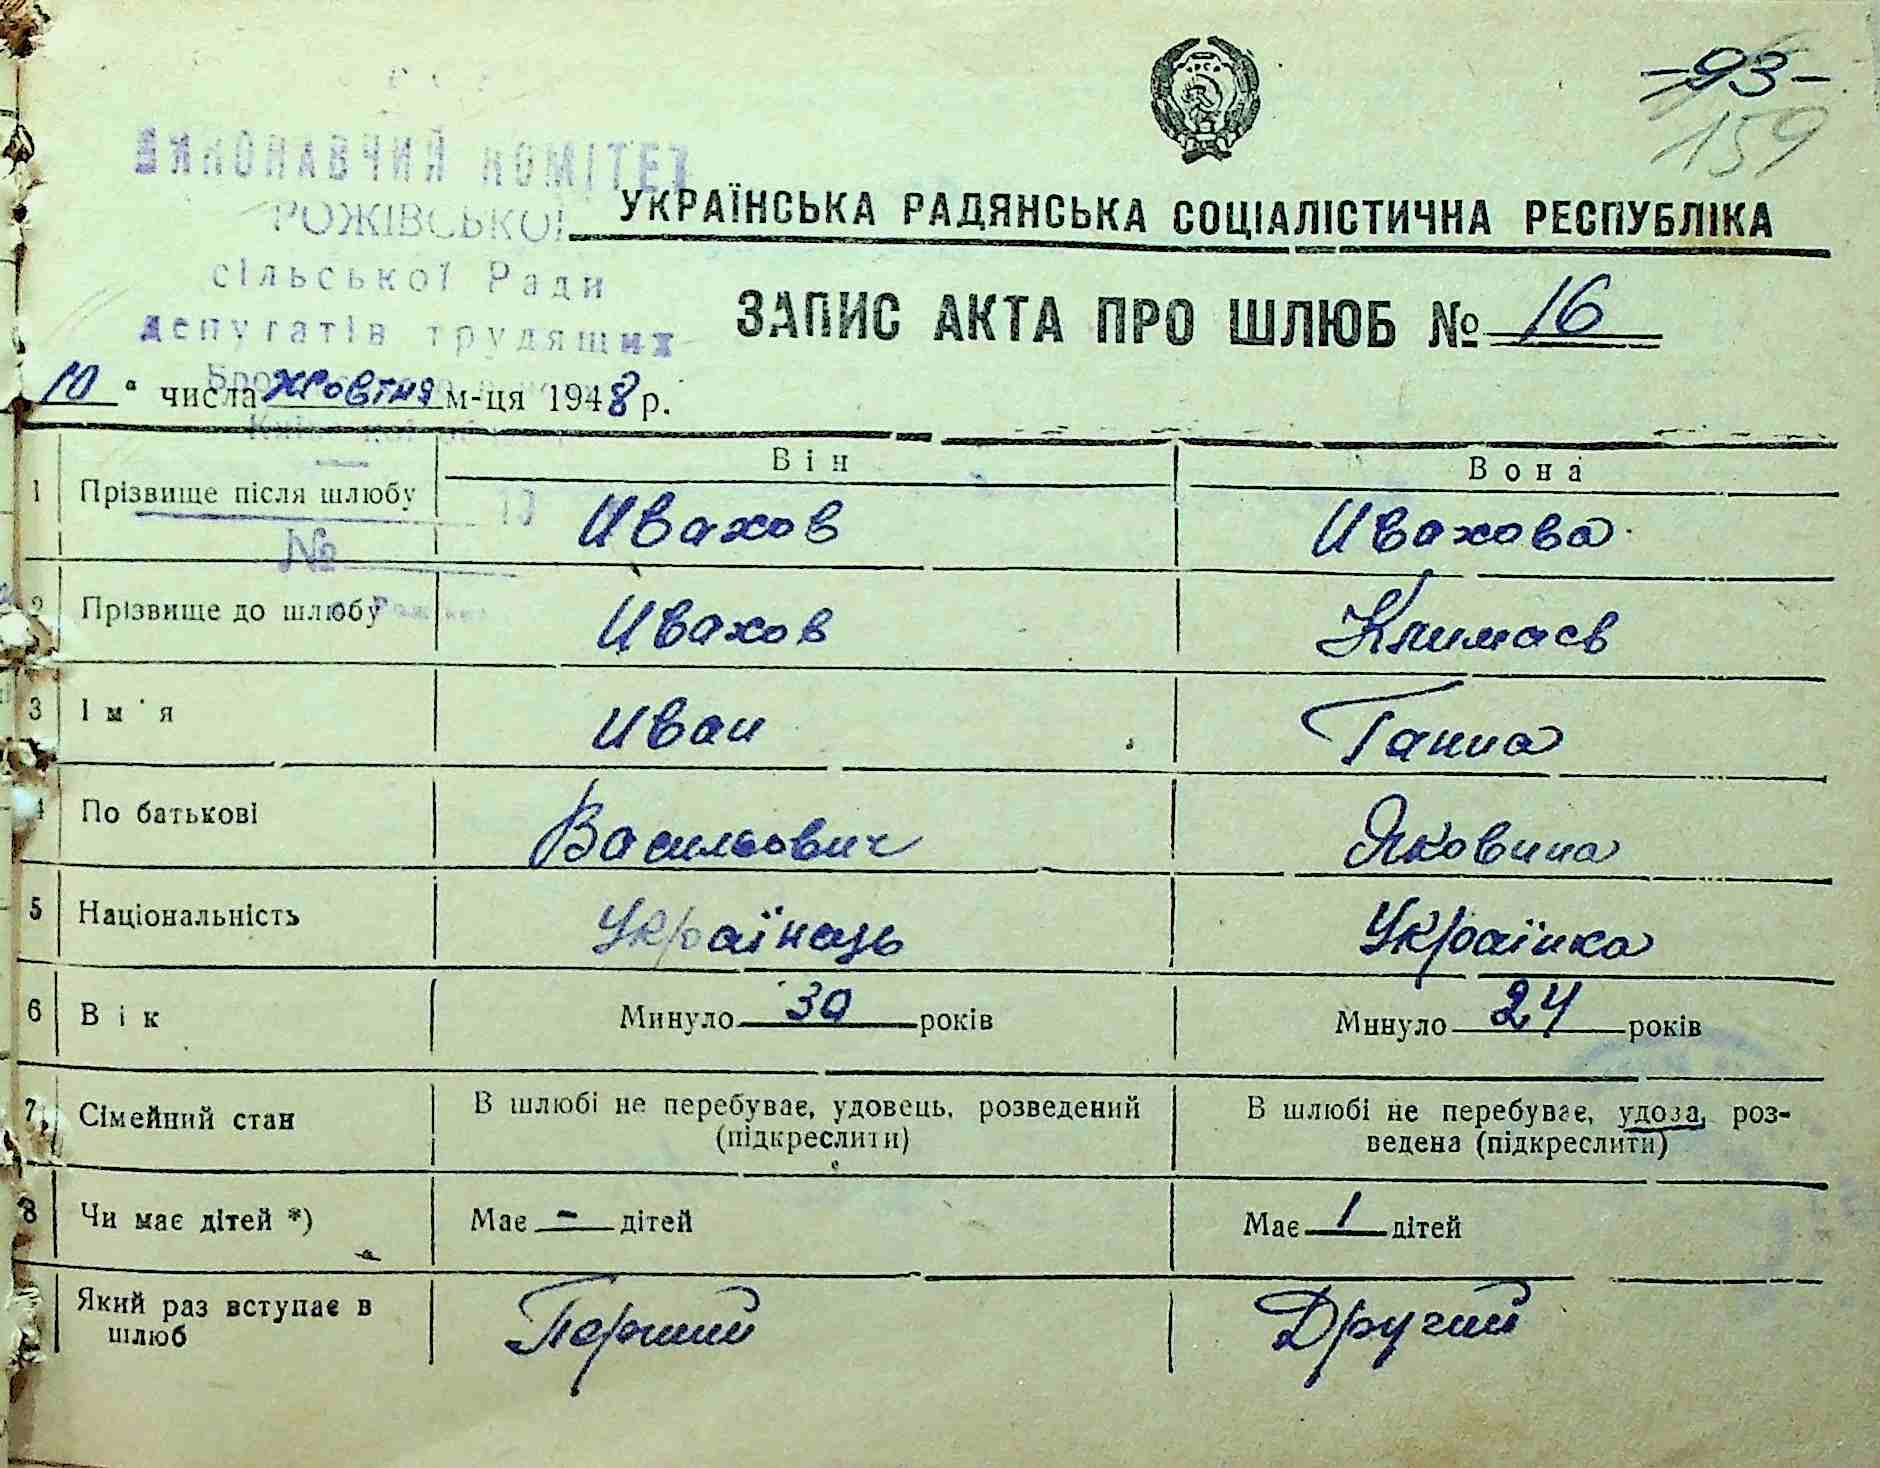 -93-
159
ВИКОНАВЧИЙ КОМІТЕТ
РОЖІВСЬКОЇ
сільської Ради
депутатів трудящих
УКРАЇНСЬКА РАДЯНСЬКА СОЦІАЛІСТИЧНА РЕСПУБЛІКА
ЗАПИС АКТА ПРО ШЛЮБ № 16
10 " числа жовтня м-ця 1948 р.
Він Вона
1 Прізвище після шлюбу Ивахов Ивахова
№
2 Прізвище до шлюбу Ивахов Климаєв
3 Ім'я Иван Ганна
4 По батькові Васильович Яковина
5 Національність Українець Українка
6 Вік Минуло 30 років Минуло 24 років
7 Сімейний стан В шлюбі не перебуває, удовець, розведений (підкреслити) В шлюбі не перебуває, удова, роз-
ведена (підкреслити)
8 Чи має дітей *) Має - дітей Має 1 дітей
Який раз вступає в Перший Другий
шлюб